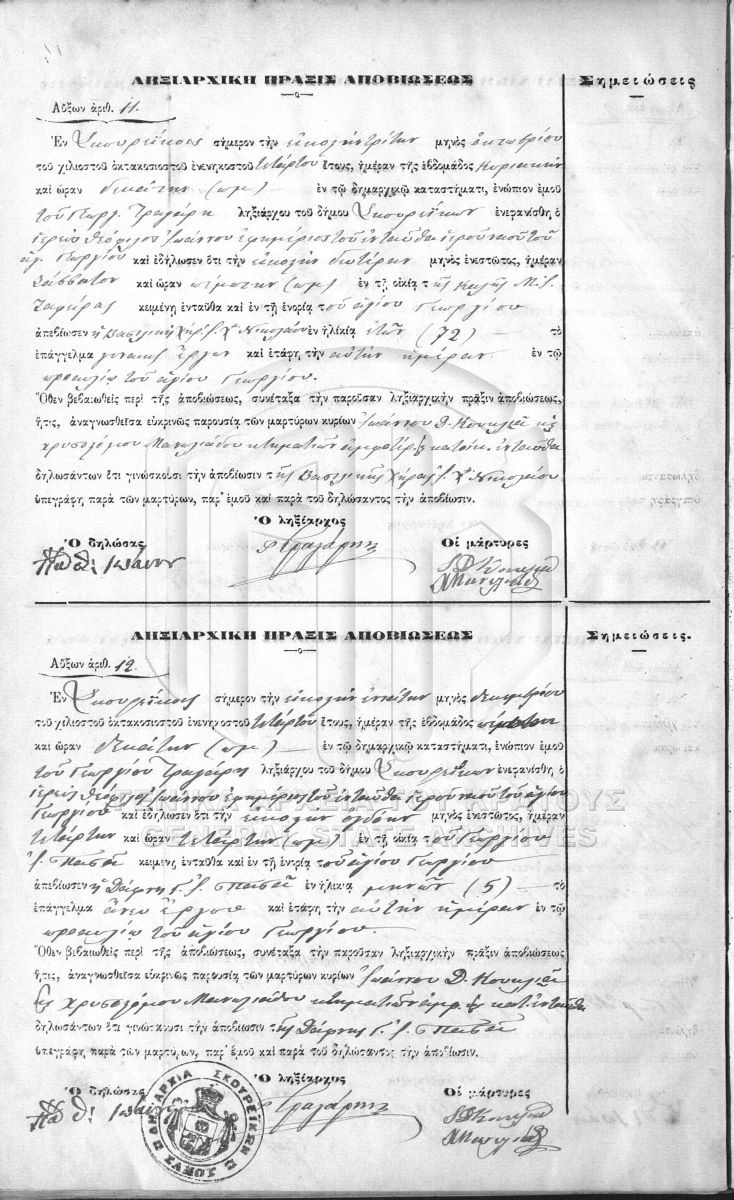 ΛΗΞΙΑΡΧΙΚΗ ΠΡΑΞΙΣ ΑΠΟΒΙΩΣΕΩΣ
Σημειώσεις
Αὔξων ἀριθ. 11.
Ἐν Σκουρέϊκοις σήμερον τὴν εἰκοστὴν τρίτην μηνὸς ὀκτωβρίου
τοῦ χιλιοστοῦ ὀκτακοσιοστοῦ ἐνενηκοστοῦ τετάρτου ἔτους, ἡμέραν τῆς ἑβδομάδος Κυριακὴν
καὶ ὥραν δεκάτην (πμ) ἐν τῷ δημαρχικῷ καταστήματι, ἐνώπιον ἐμοῦ
τοῦ Γεωργ. Τραγάρη ληξιάρχου τοῦ δήμου Σκουρεΐκων ἐνεφανίσθη ὁ
ἱερεὺς Θεόφιλος Ἰωάννου ἐφημέριος τοῦ ἐνταῦθα ἱεροῦ ναοῦ τοῦ
ἁγ. Γεωργίου καὶ ἐδήλωσεν ὅτι τὴν εἰκοστὴν δευτέραν μηνὸς ἐνεστῶτος, ἡμέραν
Σάββατον καὶ ὥραν πέμπτην (πμ) ἐν τῇ οἰκίᾳ τῆς
κειμένῃ ἐνταῦθα καὶ ἐν τῇ ἐνορίᾳ τοῦ ἁγίου Γεωργίου
ἀπεβίωσεν ἡ Βασιλικὴ Χήρ. Νικολάου ἐν ἡλικίᾳ ἐτῶν (72) τὸ
ἐπάγγελμα ἔργων καὶ ἐτάφη τὴν αὐτὴν ἡμέραν ἐν τῷ
προαυλίῳ τοῦ ἁγίου Γεωργίου.
Ὅθεν βεβαιωθεὶς περὶ τῆς ἀποβιώσεως, συνέταξα τὴν παροῦσαν ληξιαρχικὴν πρᾶξιν ἀποβιώσεως,
ἥτις, ἀναγνωσθεῖσα εὐκρινῶς παρουσίᾳ τῶν μαρτύρων κυρίων Ἰωάννου Δ. Κουκλιᾶ κ
Χρυσοστόμου Μανωλιάδου κτηματιῶν ἀμφοτέρ. κατοίκ. ἐνταῦθα
δηλωσάντων ὅτι γινώσκουσι τὴν ἀποβίωσιν τῆς Βασιλικῆς Χήρας Νικολάου
ὑπεγράφη παρὰ τῶν μαρτύρων, παρ' ἐμοῦ καὶ παρὰ τοῦ δηλώσαντος τὴν ἀποβίωσιν.
Ὁ δηλώσας Ὁ ληξίαρχος Οἱ μάρτυρες
Παπᾶ Θ: Ἰωάννου Γ Τραγάρης
ΛΗΞΙΑΡΧΙΚΗ ΠΡΑΞΙΣ ΑΠΟΒΙΩΣΕΩΣ
Σημειώσεις.
Αὔξων ἀριθ. 12.
Ἐν Σκουρέϊκοις σήμερον τὴν εἰκοστὴν ἐννάτην μηνὸς δεκεμβρίου
τοῦ χιλιοστοῦ ὀκτακοσιοστοῦ ἐνενηκοστοῦ τετάρτου ἔτους, ἡμέραν τῆς ἑβδομάδος πέμπτην
καὶ ὥραν δεκάτην (πμ) ἐν τῷ δημαρχικῷ καταστήματι, ἐνώπιον ἐμοῦ
τοῦ Γεωργίου Τραγάρη ληξιάρχου τοῦ δήμου Σκουρεΐκων ἐνεφανίσθη ὁ
ἱερεὺς Θεόφιλος Ἰωάννου ἐφημέριος τοῦ ἐνταῦθα ἱεροῦ ναοῦ τοῦ ἁγίου
Γεωργίου καὶ ἐδήλωσεν ὅτι τὴν εἰκοστὴν ὀγδόην μηνὸς ἐνεστῶτος, ἡμέραν
τετάρτην καὶ ὥραν τετάρτην (πμ) ἐν τῇ οἰκίᾳ τοῦ Γεωργίου
κειμένῃ ἐνταῦθα καὶ ἐν τῇ ἐνορίᾳ τοῦ ἁγίου Γεωργίου
ἀπεβίωσεν ἡ Δάφνη Γ. ἐν ἡλικίᾳ μηνῶν (5) τὸ
ἐπάγγελμα ἄνευ ἔργου καὶ ἐτάφη τὴν αὐτὴν ἡμέραν ἐν τῷ
προαυλίῳ τοῦ ἁγίου Γεωργίου.
Ὅθεν βεβαιωθεὶς περὶ τῆς ἀποβιώσεως, συνέταξα τὴν παροῦσαν ληξιαρχικὴν πρᾶξιν ἀποβιώσεως
ἥτις, ἀναγνωσθεῖσα εὐκρινῶς παρουσίᾳ τῶν μαρτύρων κυρίων Ἰωάννου Δ. Κουκλιᾶ
Χρυσοστόμου Μανωλιάδου κτηματιῶν ἀμφ. κατ. ἐνταῦθα
δηλωσάντων ὅτι γινώσκουσι τὴν ἀποβίωσιν τῆς Δάφνης Γ.
ὑπεγράφη παρὰ τῶν μαρτύρων, παρ' ἐμοῦ καὶ παρὰ τοῦ δηλώσαντος τὴν ἀποβίωσιν.
Ὁ δηλώσας Ὁ ληξίαρχος Οἱ μάρτυρες
Παπᾶ Θ: Ἰωάννου Τραγάρης
ΔΗΜΑΡΧΙΑ ΣΚΟΥΡΕΪΚΩΝ
ΓΕΝΙΚΑ ΑΡΧΕΙΑ ΤΟΥ ΚΡΑΤΟΥΣ
GENERAL STATE ARCHIVES